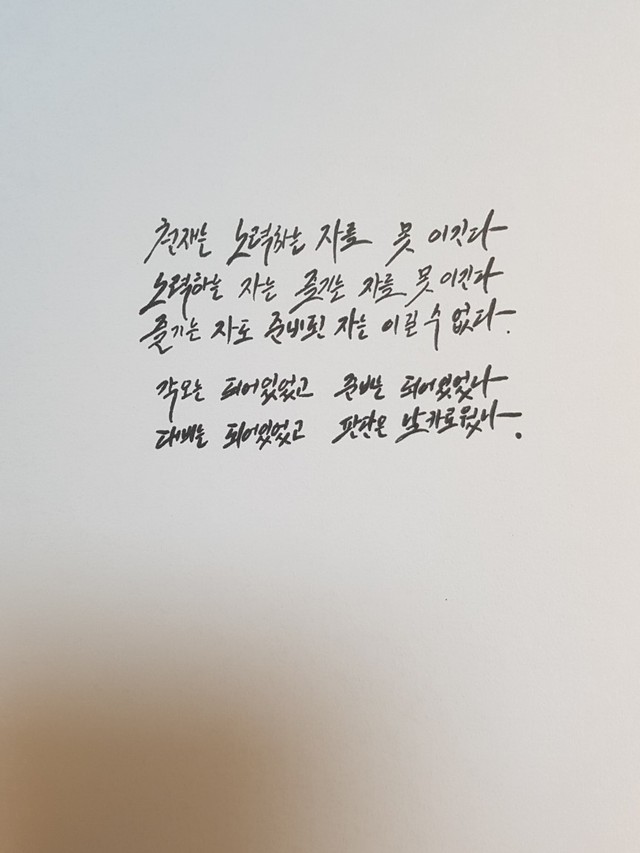 천재는 노력하는 자를 못 이긴다
노력하는 자는 즐기는 자를 못 이긴다
즐기는 자도 준비된 자는 이길 수 없다.
각오는 되어있었고 준비는 되어있었나
대비는 되어있었고 판단은 날카로웠나.